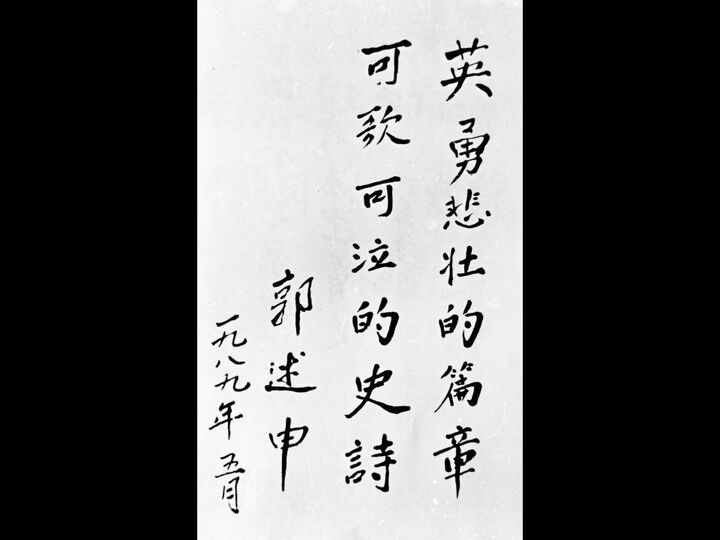 英勇悲壮的篇章
可歌可泣的史詩
郭述申
一九八九年五月